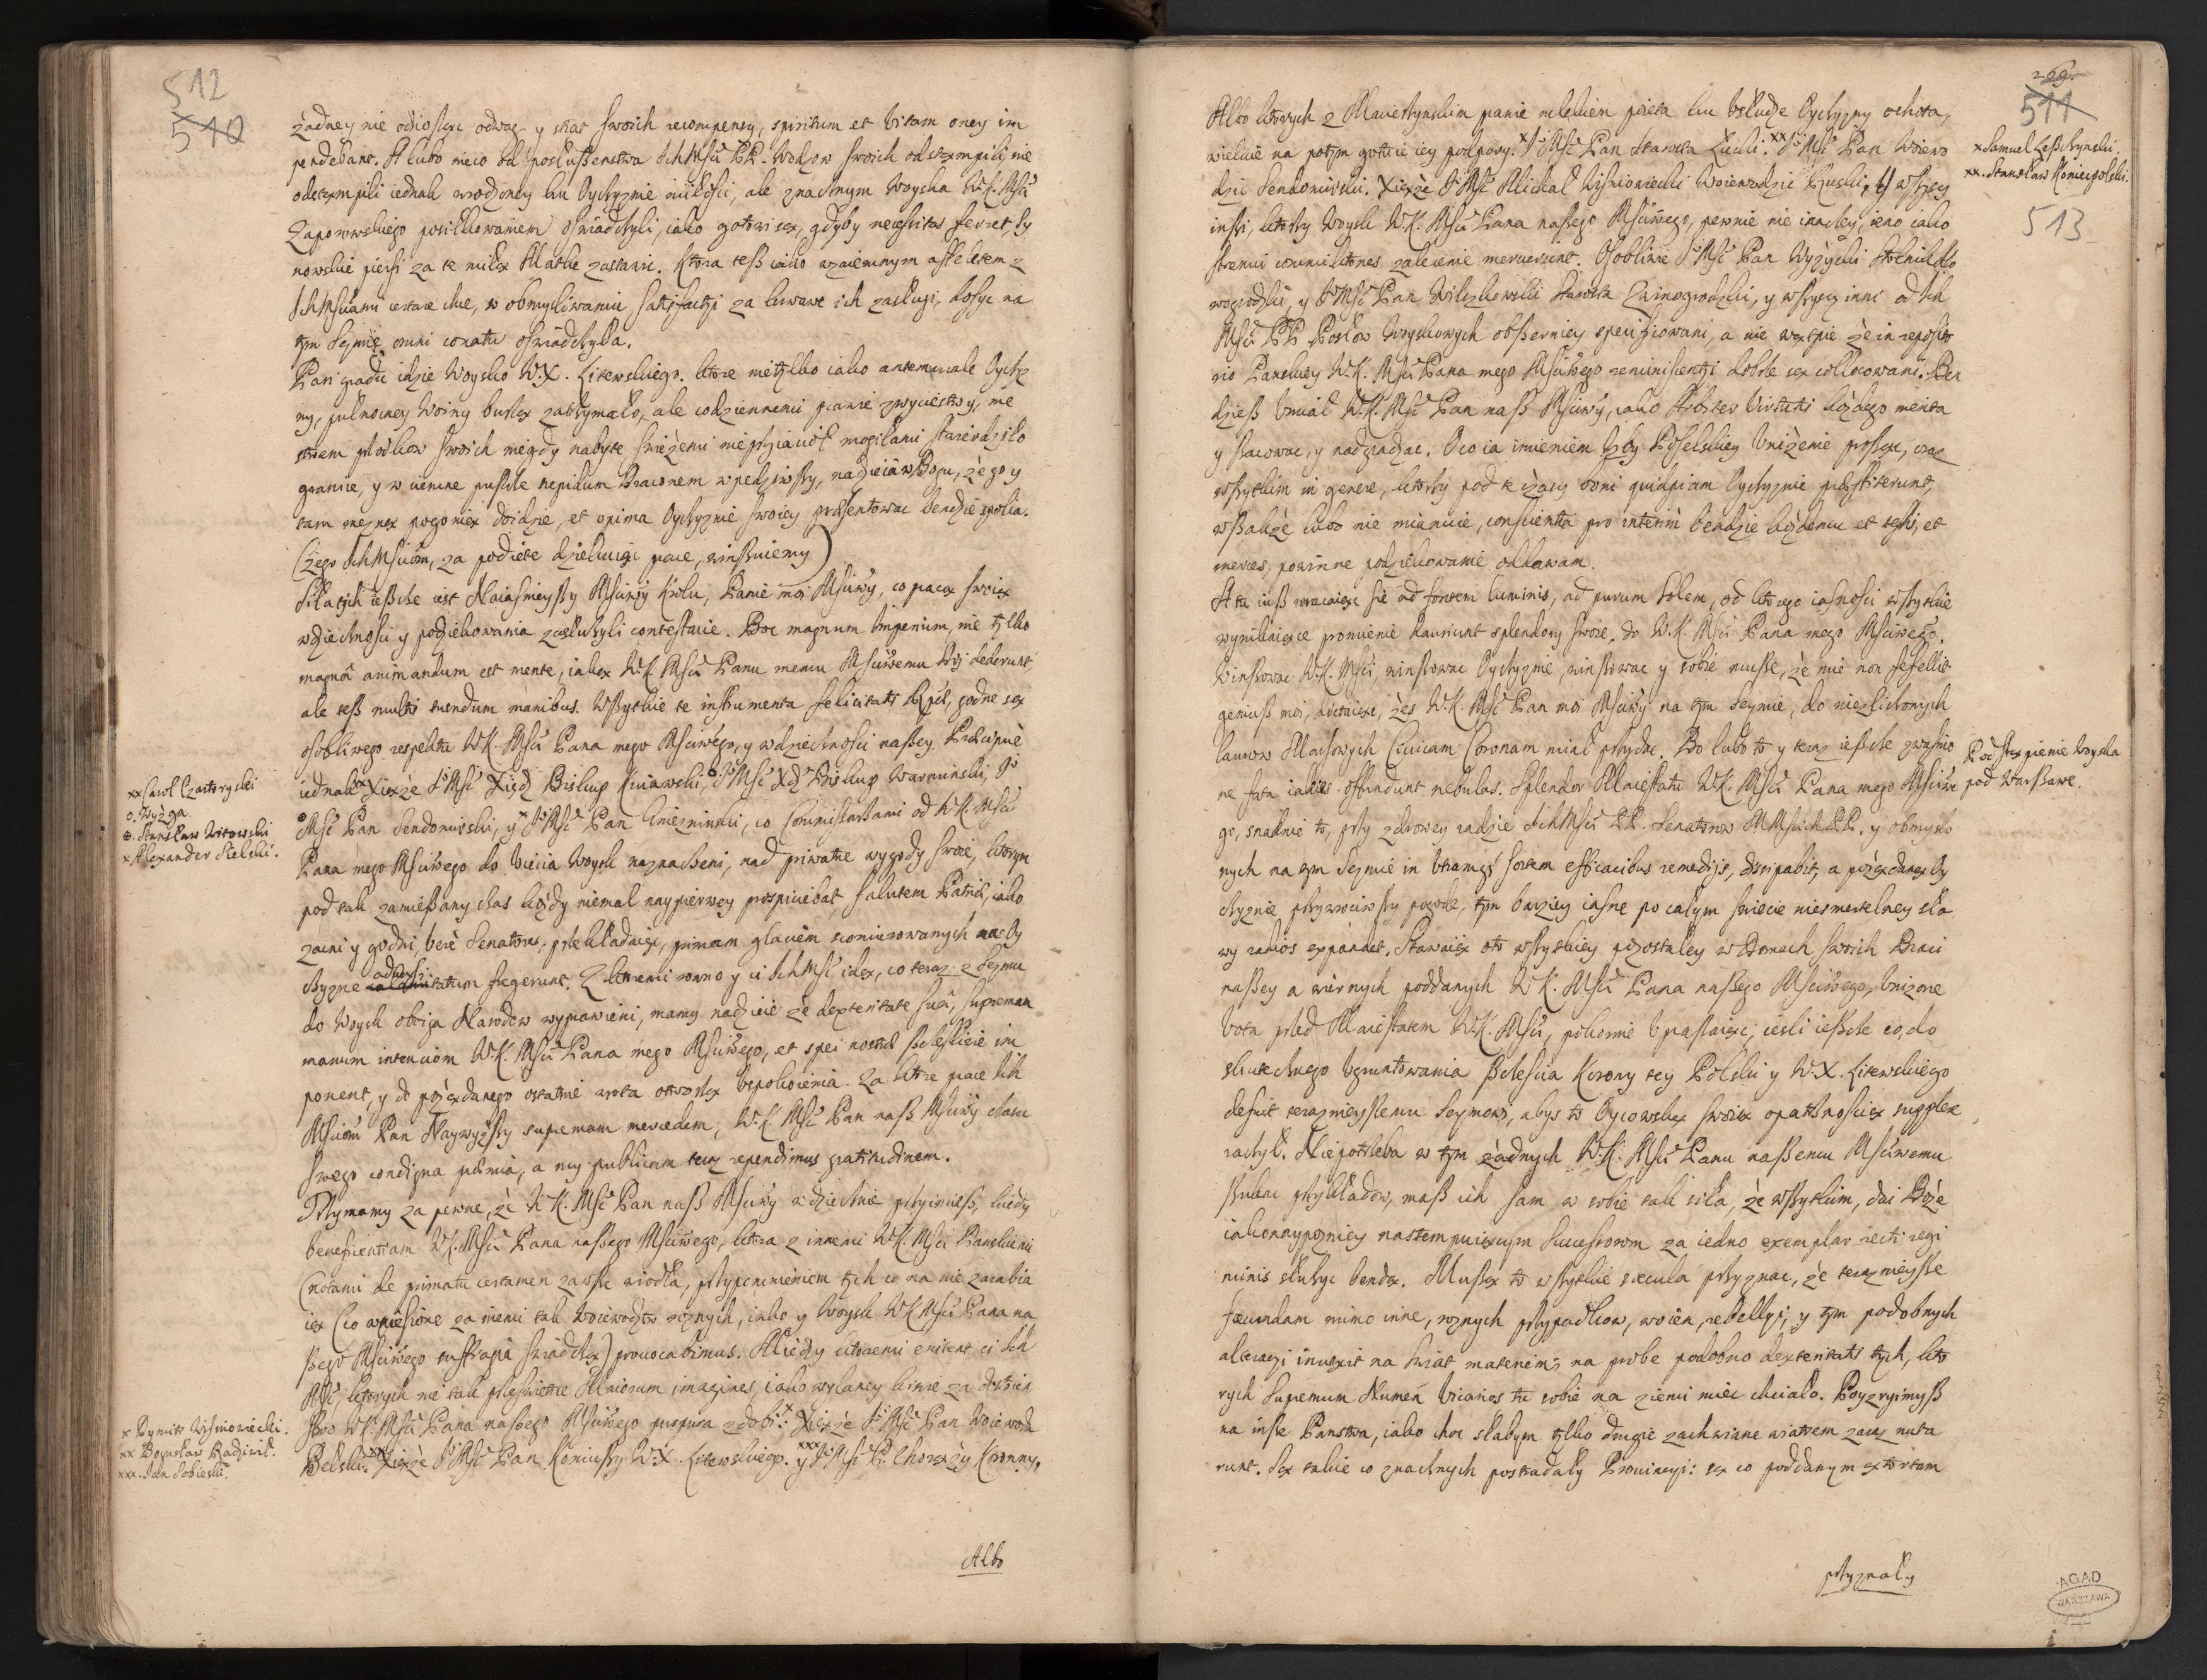 512
510
żadney nie odioslszy odwag y strat swoich recompensy, spiritum et vitam oney im
pendebant. A lubo nieco od posłuszenstwa Ich Msciow PP. Wodzow swoich odstąmpili, nie
odstąmpili iednak wrodzoney ku Oyczyznie miłości, ale znacznym Woyska W.K. Msci
Zaporowskiego posiłkowaniem oświadczyli, iako gotowi są, gdyby necessitas ferret, sy
nowskie piersi za te miłą Matkę zastawić. Ktora tesz iako wzaiemnym affektem z
Ich Msciami certare chce, w obmysliwaniu satisfactij za krwawe ich zasługi, dosyc na
tym Seymie omni conatu oświadczyła.
Pari gradu idzie Woysko W.X. Litewskiego. ktore nie tylko iako antemurale Oyczy
zny, pułnocney Woiny burzą zatrzymało, ale codziennemi prawie zwycięstwy, me
stwem przodkow swoich niegdy nabyte, świeżemi nieprzyiacioł mogiłami starwierdziło
granice, y w ciemne puszcze trepidum Draconem wpędziwszy, nadzieia w Bogu, że go y
tam mężną pogonią doidzie, et opima Oyczyznie swoiey praesentować będzie spolia.
(czego Ich Msciom, za podięte dziękuiąc prace, winszuiemy)
Siła tych ieszcze iest Naiasnieyszy Msciwy Krolu, Panie moi Msciwy, co pracą swoią
wdzięcznosci y podziękowania zasłużyli contestacie. Boc magnum Imperium, nie tylko
magnâ animandum est mente, iaką W.K. Msci Panu memu Msciwemu Dij dederunt
ale tesz multis tuendum manibus. Wszytkie te instrumenta felicitatis Rptae, godne są
osobliwego respektu W.K. Msci Pana mego Msciwego, y wdzięcznosci naszey. Praecipuè
iednak xx Xiążę Jo Msc Xiądz Biskup Kuiawski, o Jo Msc Xdz Biskup Warminski, Jo
Msc Pan Sendomirski, y x Jo Msc Pan Gnieznienski, co Commissarzami od W.K. Msci
Pana mego Msciwego do Uięcia Woysk naznaczeni, nad priwatne wygody swoie, ktorym
pod tak zamieszany czas każdy niemal naypierwey prospiciebat, salutem Patriae, iako
zacni y godni, verè Senatores, przekładaiąc, primam glaciem sconiurowanych na Oy
czyznę adversitatum fregerunt. Z ktoremi rowno y ci Ich Msc idą, co teraz z Seymu
do Woysk oboyga Narodow wyprawieni, mamy nadzieię że dexteritate suâ, supremam
manum intenciom W.K. Msci Pana mego Msciwego, et spei nostrae szczesliwie im
ponent, y do pożądanego ostatnie wrota otworzą uspokoienia. Za ktore prace Ich
Msciom Pan Naywyższy supremam mercedem, W.K. Msc Pan nasz Msciwy czasu
swego condigna praemia, a my publicam teraz rependimus gratitudinem.
Trzymamy za pewne, że W.K. Msc Pan nasz Msciwy wdzięcznie przyimiesz, kiedy
beneficentiam W.K. Msci Pana naszego Msciwego, ktora z innemi W.K. Msci Panskiemi
Cnotami de primatu certamen zawsze wiodła, przypomnieniem tych co na nię zarabia
ią (co wniesione za niemi tak Woiewodztw roznych, iako y Woysk W.K. Msci Pana na
szego Msciwego suffragia świadczą) provocabimus. Między ktoremi enitent ci Ich
Msc, ktorych nie tak przeswietne Maiorum imagines, iako wylaney krwie za dostoien
stwo W.K. Msci Pana naszego Msciwego purpura zdobi: x Xiążę Jo Msc Pan Woiewoda
Bełski. xx Xiążę Jo Msc Pan Koniuszy W.X. Litewskiego. y xxx Jo Msc P. Chorąży Koronny.
Albo
xx Karol Czartoryski
o. Wyżga.
⊕. Stanisław Witowski
x Alexander Sielski.
x Dymitr Wisniowiecki.
xx Bogusław Radziwił.
xxx. Jan Sobieski.
269.
511
513
Albo ktorych z Macierzynskim prawie mlekiem pięta ku usłudze Oyczyzny ochota,
wielkie na potym gotuie iey podpory. x Jo Msc Pan Starosta Łucki. xx Jo Msc Pan Woiewo
dzic Sendomirski. Xiążę Jo Msc Michał Wisniowiecki Woiewodzic Ruski, y wszyscy
inszi, ktorzy Woysk W.K. Msci Pana naszego Msciwego, pewnie nie inaczey, ieno iako
strenui commilitones zalecenie meruerunt. Osobliwie Jo Msc Pan Wyżycki Stolnik No
wogrodzki, y Jo Msc Pan Wilczkowski Starosta Zwinogrodzki, y wszyscy inni od Ich
Msci PP. Posłow Woyskowych obszerniey specificowani, a nie wątpię że in reposito
rio Panskiey W.K. Msci Pana mego Msciwego reminiscentij dobrze są collocowani. Ben
dziesz umiał W.K. Msc Pan nasz Msciwy, iako Arbiter Virtutis każdego merita
y szacować, y nadgradzać. O co ia imieniem Izby Poselskiey uniżenie proszę, oraz
wszytkim in genere, ktorzy pod te czasy boni quidpiam Oyczyznie praestiterunt,
wszakże lubo nie mianuie, conscientia pro interim bendzie każdemu et testis, et
merces, powinne podziękowanie oddawam.
A tu iusz wracaiąc się ad fontem luminis, ad purum Solem, od ktorego iasnosci wszytkie
wynikaiące promienie hauriunt splendory swoie. do W.K. Msci Pana mego Msciwego.
Winszować W.K. Msci, winszować Oyczyznie, winszować y sobie muszę, że mię non fefellit
geniusz moi, dictaiąc, żes W.K. Msc Pan moi Msciwy na tym Seymie, do niezliczonych
laurow Marsowych Civicam Coronam miał przydać. Bo lubo to y teraz ieszcze zważnio
ne fata iakies offundunt nebulas. Splendor Maiestatu W.K. Msci Pana mego Msciwe
go, snadnie to, przy zdrowey radzie Ich Msciow PP. Senatorow MMsciich PP. y obmyslo
nych na tym Seymie in utramq sortem efficacibus remedijs, dissipabit, a pożądaną Oy
czyznie przywrociwszy pogodę, tym bardziey iasne po całym świecie niesmiertelney sła
wy radios expandet. Stawaiąc oto wszytkiey pozostałey w Domach swoich Braci
naszey a wiernych poddanych W.K. Msci Pana naszego Msciwego, unizone
vota przed Maiestatem W.K. Msci, pokornie upraszaiąc, iesli ieszcze co, do
skutecznego ugruntowania szczęscia Korony tey Polski y W.X. Litewskiego
defuit terazniejszemu Seymowi, abys to Oycowską swoią opatrznoscią supplere
raczył. Niepotrzeba w tym żadnych W.K. Msci Panu naszemu Msciwemu
szukać przykładow, masz ich sam w sobie tak siła, że wszytkim, dai Boże
iakonaypozniey nastempuiącym Successorom za iedno exemplar recti regi
minis służyć bendą. Muszą to wszytkie saecula przyznać, że terazniejsze
fecundam mimo inne, roznych przypadkow, woien, rebellij, y tym podobnych
alteracij inuexit na świat materiem, na probę podobno dexteritatis tych, kto
rych Supremum Numen vicarios tu sobie na ziemi mieć chciało. Poyzrzymysz
na insze Panstwa, iako hoc słabym tylko drugie zachwiane wiatrem zaraz nuta
runt. Są takie co znacznych postradały Prouincyi: są co poddanym extortam
przyznały
x Samuel Leszczynski.
xx. Stanisław Koniecpolski.
Podstąpienie Woyska
pod Warszawę.
AGAD
WARSZAWA